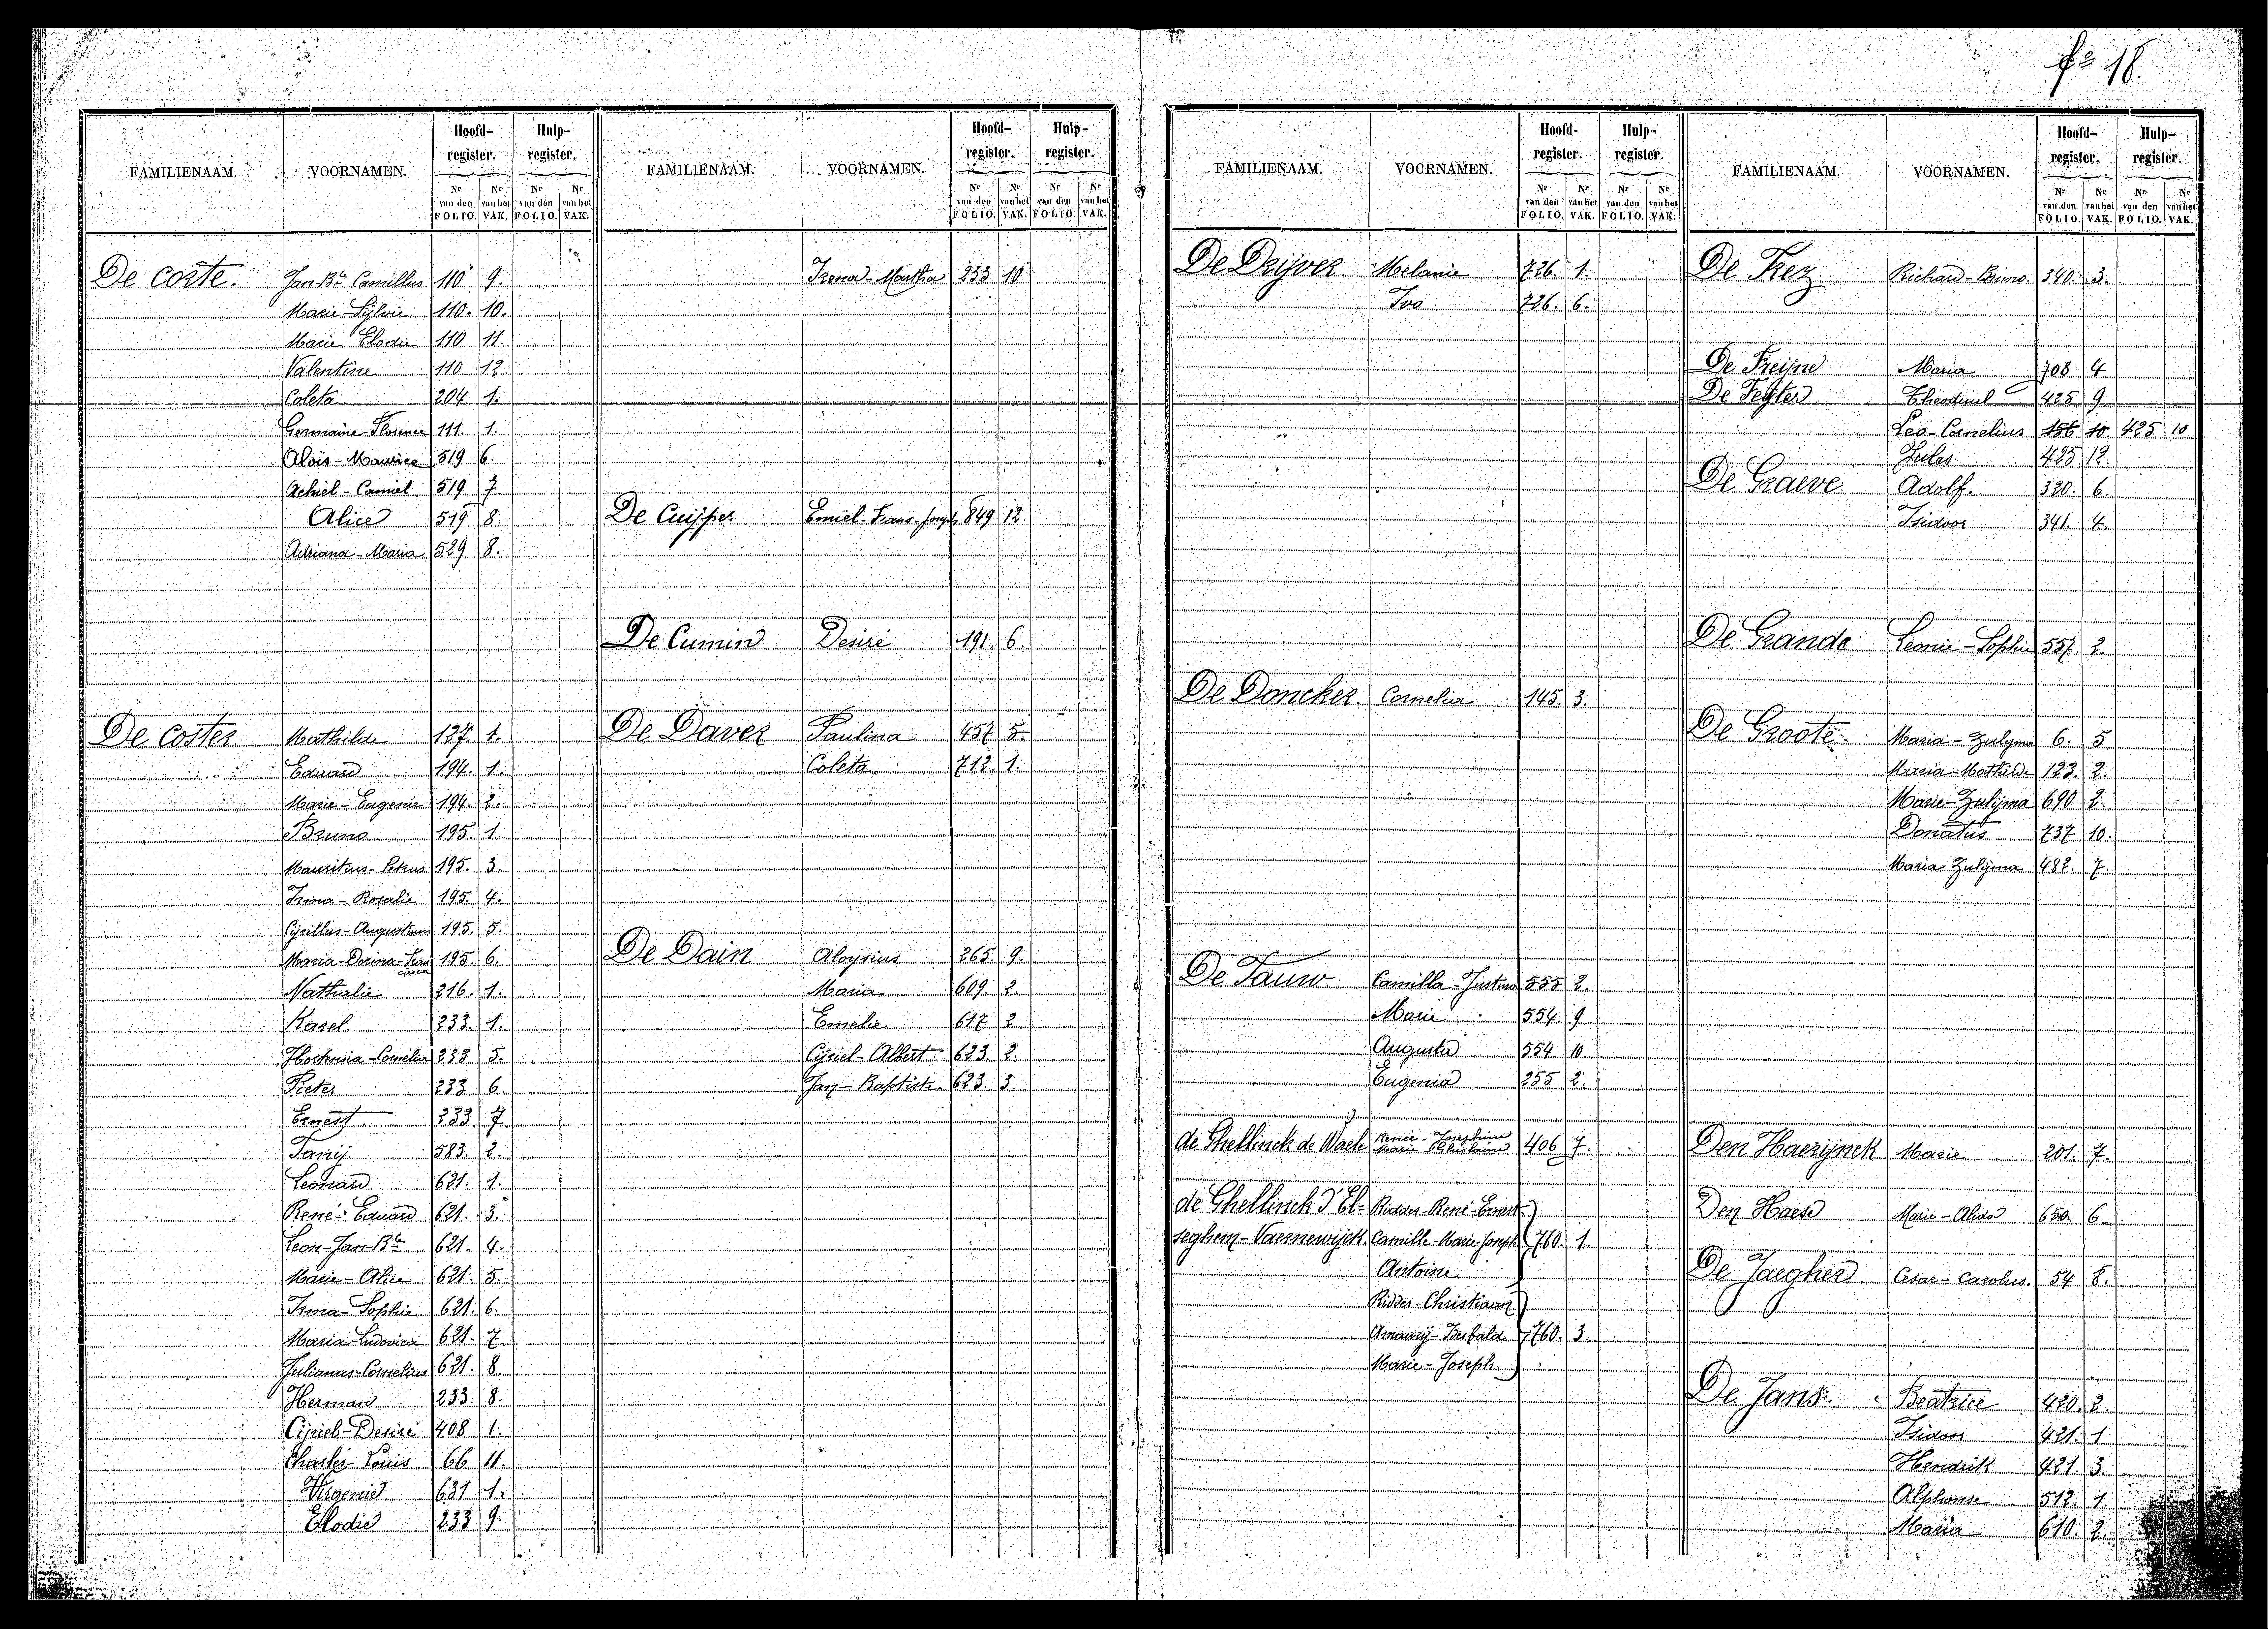 fº 18.
FAMILIENAAM. VOORNAMEN. Hoofd-register. Hulp-register.
Nr van den FOLIO. Nr van het VAK. Nr van den FOLIO. Nr van het VAK.
De Coste. Jan-Bta Camillus 110 9.
Marie-Sijlvie 110. 10.
Marie Elodie 110 11.
Valentine 110 12.
Coleta 204 1.
Germaine-Florence 111. 1.
Aloïs-Maurice 519 6.
Achiel-Camiel 519 7
Alice 519 8.
Adriana-Maria 529 8.
De Coster Mathilde 127 1.
Eduard 194. 1.
Marie-Eugenie 194. 2.
Bruno 195. 1.
Mauritius-Petrus 195. 3.
Irma-Rosalie 195. 4.
Cyrillus-Augustinus 195. 5.
Maria-Dorina-Fran 195. 6.
Nathalie 216. 1.
Karel 233. 1.
Hortensia-Cornelia 233 5.
Pieter 233 6.
Ernest 233. 7
Fanij 583. 2.
Leonard 621. 1.
René-Eduard 621. 3.
Leon-Jan-Bta 621. 4.
Marie-Alice 621. 5.
Irma-Sophie 621. 6.
Maria-Ludovica 621. 7.
Julianus-Cornelius 621. 8
Herman 233. 8.
Cijriel-Desiré 408 1.
Charles-Louis 66 11.
Virgenie 631 1.
Elodie 233 9.
FAMILIENAAM. VOORNAMEN. Hoofd-register. Hulp-register.
Nr van den FOLIO. Nr van het VAK. Nr van den FOLIO. Nr van het VAK.
Irena-Martha 233 10
De Cuijper. Emiel-Frans-Joseph 849 12.
De Cumin Desiré 191. 6.
De Daver Paulina 457 5.
Coleta 712. 1.
De Dain Aloysius 265. 9.
Maria 609. 2.
Emelie 617 2
Cijriel-Albert 623. 2.
Jan-Baptiste 623. 3.
FAMILIENAAM. VOORNAMEN. Hoofd-register. Hulp-register.
Nr van den FOLIO. Nr van het VAK. Nr van den FOLIO. Nr van het VAK.
De Drijver Melanie 726. 1.
Ivo 726. 6.
De Doncker. Cornelia 145. 3.
De Fauw. Camilla-Justina 555 2.
Marie 554. 9
Augusta 554 10.
Eugenia 255 2.
de Ghellinck de Waele Renée-Josephine
Marie Ghislaine 406 7.
de Ghellinck d'El= Ridder-René-Ernest
seghem-Vaernewijck. Camille-Marie-Joseph 760. 1.
Antoine
Ridder-Christiaan
Amaurij- 760. 3.
Marie-Joseph.
FAMILIENAAM. VOORNAMEN. Hoofd-register. Hulp-register.
Nr van den FOLIO. Nr van het VAK. Nr van den FOLIO. Nr van het VAK.
De Frez. Richard-Bruno. 340. 3.
De Freijne Maria 708 4
De Feijter Theoduul 425 9
Leo-Cornelius 156 10. 425 10
Jules 425 12.
De Graeve Adolf. 320. 6.
Isidoor 341. 4.
De Grande Leonie-Sophie 557 2.
De Groote Maria-Zulyma 6. 5
Maria-Mathilde 123. 2.
Marie-Zulijma 690 2.
Donatus 737 10.
Maria Zulijma 482. 7.
Den Haerijnck Marie 201. 7.
Den Haese Marie- 650. 6
De Jaegher Cesar-Carolus. 54 8.
De Jans. Beatrice 420. 2.
Isidoor 421. 1
Hendrik 421. 3.
Alphonse 512. 1.
Maria 610. 2.